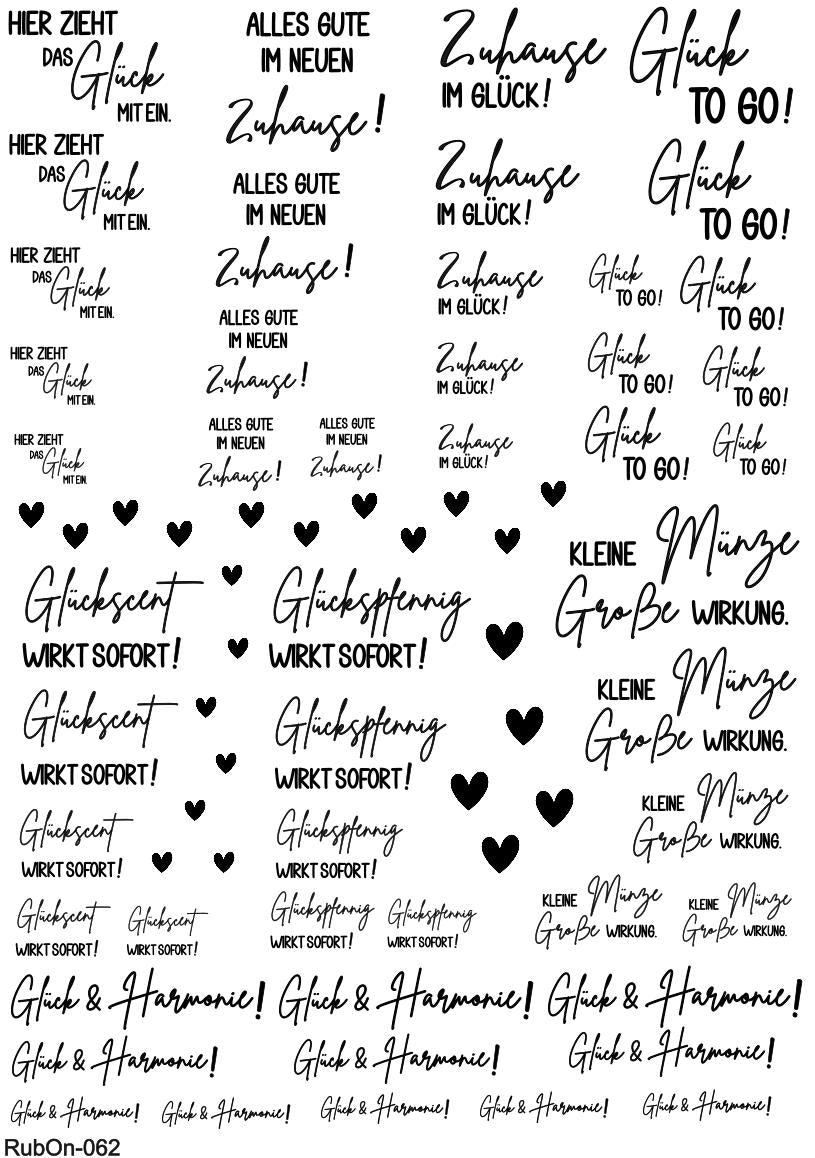 HIER ZIEHT
DAS Glück
MIT EIN.
ALLES GUTE
IM NEUEN
Zuhause!
Zuhause
IM GLÜCK!
Glück
TO GO!
HIER ZIEHT
DAS Glück
MIT EIN.
ALLES GUTE
IM NEUEN
Zuhause!
Zuhause
IM GLÜCK!
Glück
TO GO!
HIER ZIEHT
DAS Glück
MIT EIN.
ALLES GUTE
IM NEUEN
Zuhause!
Zuhause
IM GLÜCK!
Glück
TO GO!
Glück
TO GO!
HIER ZIEHT
DAS Glück
MIT EIN.
Zuhause
IM GLÜCK!
Glück
TO GO!
Glück
TO GO!
HIER ZIEHT
DAS Glück
MIT EIN.
ALLES GUTE
IM NEUEN
Zuhause!
ALLES GUTE
IM NEUEN
Zuhause!
Zuhause
IM GLÜCK!
Glück
TO GO!
Glück
TO GO!
Glückscent
WIRKT SOFORT!
Glückspfennig
WIRKT SOFORT!
KLEINE Münze
Große WIRKUNG.
Glückscent
WIRKT SOFORT!
Glückspfennig
WIRKT SOFORT!
KLEINE Münze
Große WIRKUNG.
Glückscent
WIRKT SOFORT!
Glückspfennig
WIRKT SOFORT!
KLEINE Münze
Große WIRKUNG.
Glückscent
WIRKT SOFORT!
Glückscent
WIRKT SOFORT!
Glückspfennig
WIRKT SOFORT!
Glückspfennig
WIRKT SOFORT!
KLEINE Münze
Große WIRKUNG.
KLEINE Münze
Große WIRKUNG.
Glück & Harmonie! Glück & Harmonie! Glück & Harmonie!
Glück & Harmonie! Glück & Harmonie! Glück & Harmonie!
Glück & Harmonie! Glück & Harmonie! Glück & Harmonie! Glück & Harmonie! Glück & Harmonie!
RubOn-062